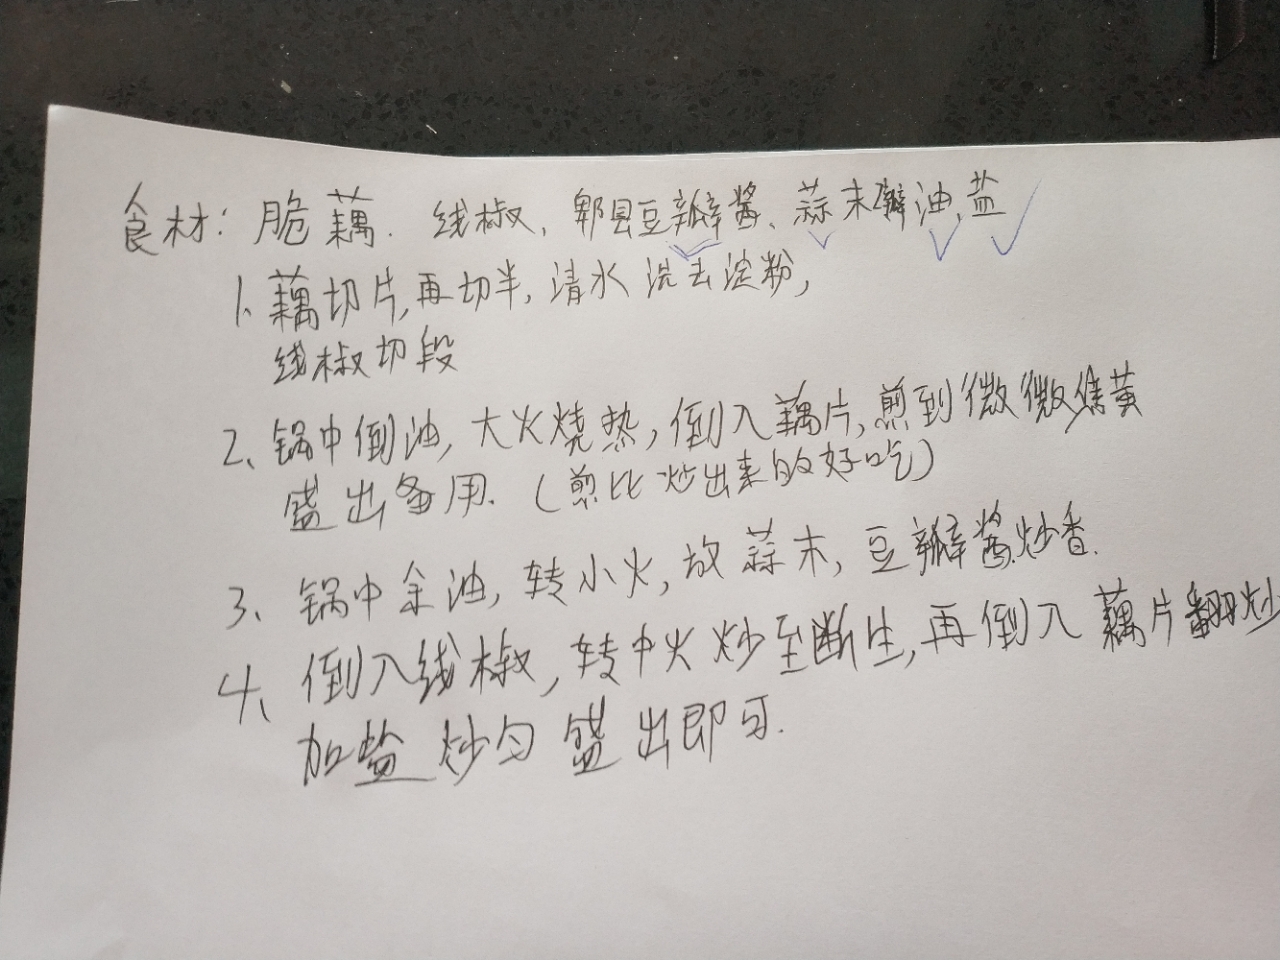 食材：脆藕．线椒、郫县豆瓣酱、蒜末 油，盐
1、藕切片，再切半，清水洗去淀粉，
线椒切段
2、锅中倒油，大火烧热，倒入藕片，煎到微微焦黄
盛出备用．（煎比炒出来的好吃）
3、锅中余油，转小火，放蒜末，豆瓣酱炒香．
4、倒入线椒，转中火炒至断生，再倒入藕片翻炒
加盐炒匀盛出即可．